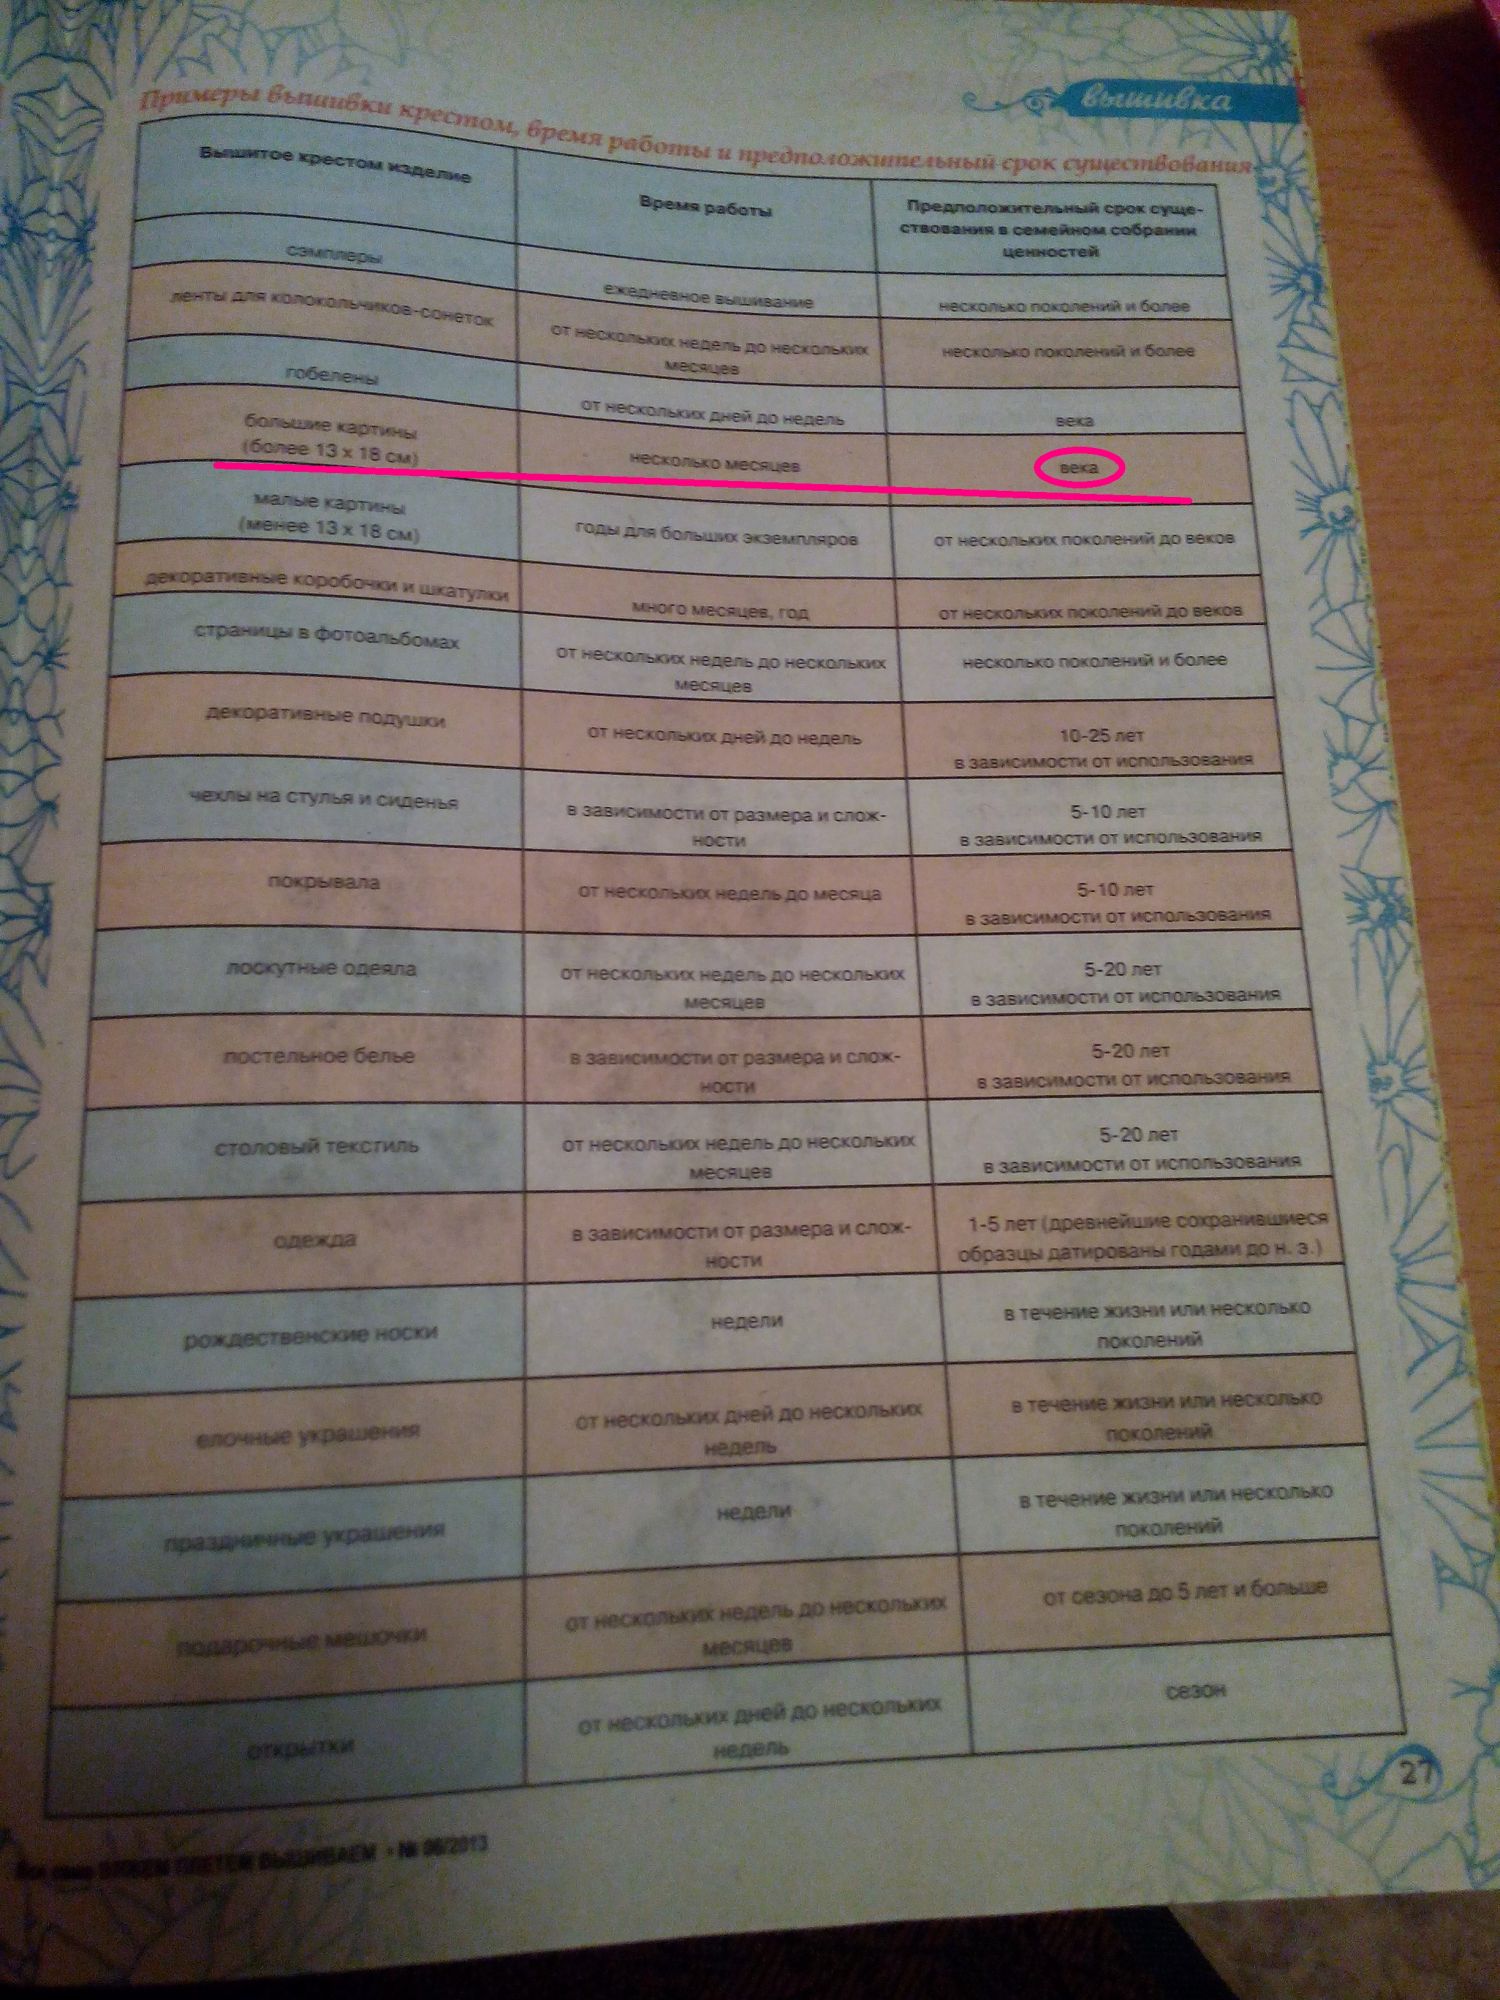 вышивка
Примеры вышивки крестом, время работы и предположительный срок существования
Вышитое крестом изделие
Время работы
Предположительный срок суще-
ствования в семейном собрании
ценностей
сэмплеры
ежедневное вышивание
несколько поколений и более
ленты для колокольчиков-сонеток
от нескольких недель до нескольких
месяцев
несколько поколений и более
гобелены
от нескольких дней до недель
века
большие картины
(более 13 х 18 см)
несколько месяцев
века
малые картины
(менее 13 х 18 см)
годы для больших экземпляров
от нескольких поколений до веков
декоративные коробочки и шкатулки
много месяцев, год
от нескольких поколений до веков
страницы в фотоальбомах
от нескольких недель до нескольких
месяцев
несколько поколений и более
декоративные подушки
от нескольких дней до недель
10-25 лет
в зависимости от использования
чехлы на стулья и сиденья
в зависимости от размера и слож-
ности
5-10 лет
в зависимости от использования
покрывала
от нескольких недель до месяца
5-10 лет
в зависимости от использования
лоскутные одеяла
от нескольких недель до нескольких
месяцев
5-20 лет
в зависимости от использования
постельное белье
в зависимости от размера и слож-
ности
5-20 лет
в зависимости от использования
столовый текстиль
от нескольких недель до нескольких
месяцев
5-20 лет
в зависимости от использования
одежда
в зависимости от размера и слож-
ности
1-5 лет (древнейшие сохранившиеся
образцы датированы годами до н. э.)
рождественские носки
недели
в течение жизни или несколько
поколений
елочные украшения
от нескольких дней до нескольких
недель
в течение жизни или несколько
поколений
праздничные украшения
недели
в течение жизни или несколько
поколений
подарочные мешочки
от нескольких недель до нескольких
месяцев
от сезона до 5 лет и больше
открытки
от нескольких дней до нескольких
недель
сезон
27
ВЯЖЕМ ПЛЕТЕМ ВЫШИВАЕМ • № 06/2013